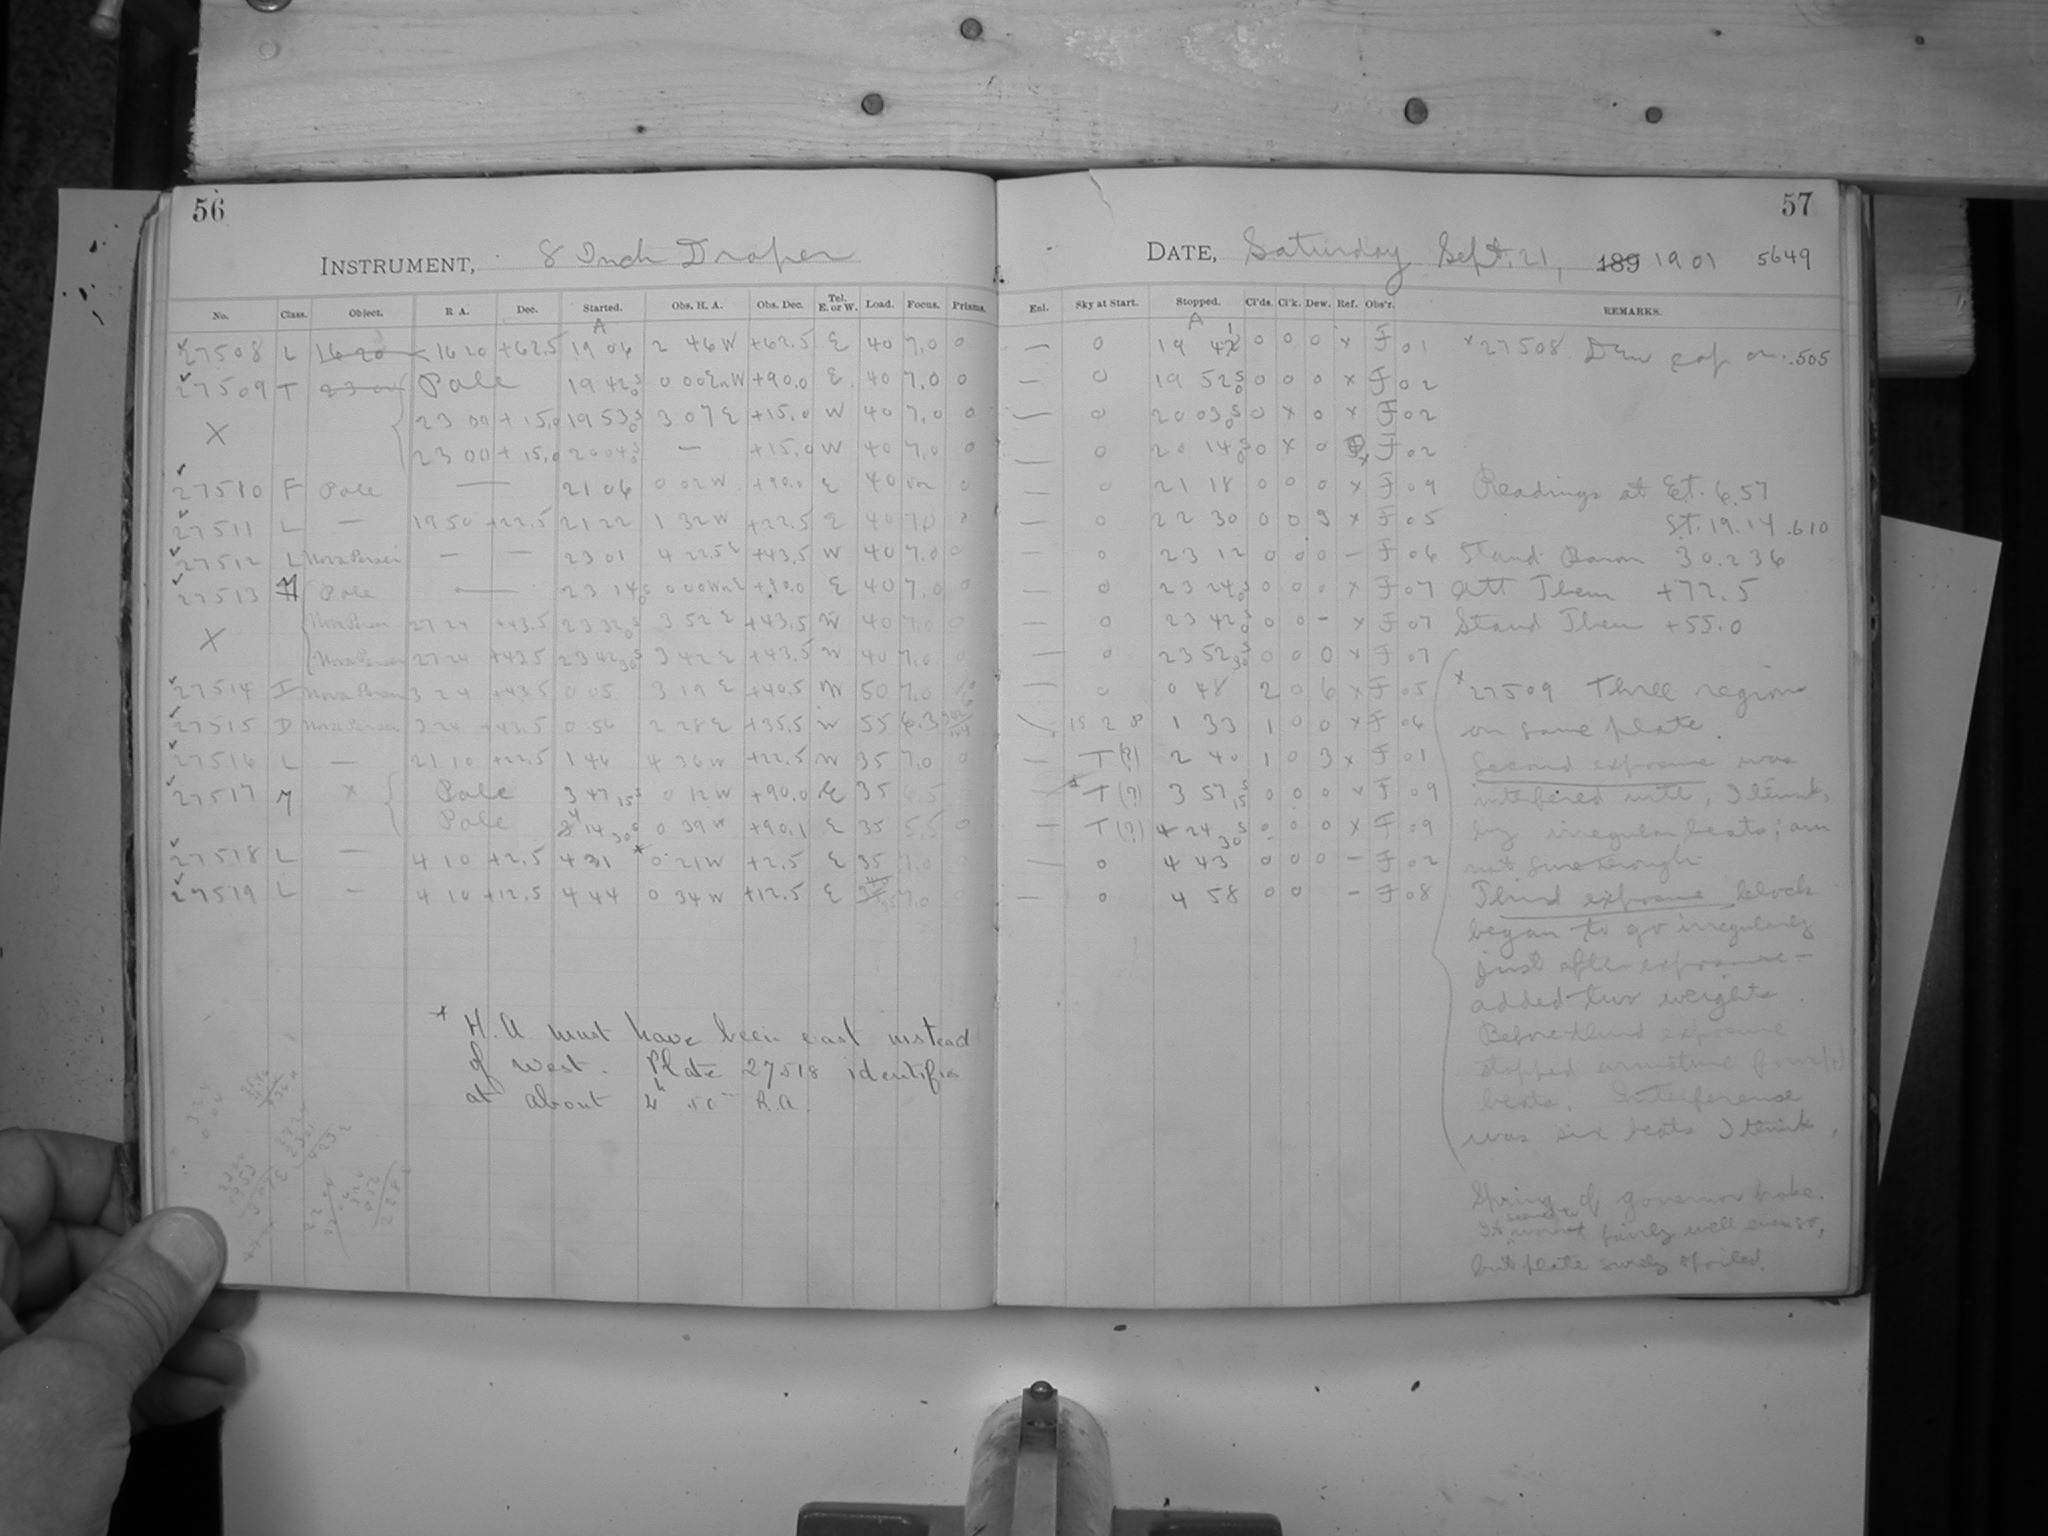 56
INSTRUMENT, 8 Inch Draper
No. Class. Object. R. A. Dec. Started. Obs. H. A. Obs. Dec. Tel. E. or W. Load. Focus. Prisms.
A
27508 L 16 20 +62.5 19 06 2 46 W +62.5 E 40 7.0 0
27509 T Pole 19 42 0 00 E n W +90.0 E 40 7.0 0
X 23 00 +15.0 19 53 3 07 E +15.0 W 40 7.0 0
23 00 +15.0 20 04 — +15.0 W 40 7.0 0
27510 F Pole — 21 06 0 02 W +90.0 E 40 0
27511 L — 19 50 +22.5 21 22 1 32 W +22.5 E 40 7.0
27512 L Nova Persei — — 23 01 4 22.5 E +43.5 W 40 7.0 0
27513 Pole — 23 14 0 00 W n E +90.0 E 40 7.0 0
X Nova Persei 27 24 +43.5 23 32 3 52 E +43.5 W 40 7.0 0
Nova Persei 27 24 +43.5 23 42 30 3 42 E +43.5 W 40 7.0 0
27514 I Nova Persei 3 24 +43.5 0 05 3 19 E +40.5 W 50 7.0
27515 D Nova Persei 3 24 +43.5 0 56 2 28 E +35.5 W 55 6.3
27516 L — 21 10 +22.5 1 46 4 36 W +22.5 W 35 7.0 0
27517 X Pole 3 47 15 0 12 W +90.0 E 35 6.5
Pole 4 14 30 0 39 W +90.1 E 35 5.5 0
27518 L — 4 10 +2.5 4 31 * 0 21 W +2.5 E 35 7.0
27519 L — 4 10 +12.5 4 44 0 34 W +12.5 E 35 7.0
* H. A must have been east instead
of west. Plate 27518 identifies
at about R.A.
57
DATE, Saturday Sept. 21, 189 1901 5649
Enl. Sky at Start. Stopped. Cl'ds. Cl'k. Dew. Ref. Obs'r. REMARKS.
A
— 0 19 41 0 0 0 x F 01 *27508 Dew cap on .505
— 0 19 52 0 0 0 x F 02
— 0 20 03 0 x 0 x F 02
— 0 20 14 0 x 0 x F 02
— 0 21 18 0 0 0 x F 09 Readings at Et. 6.57
— 0 22 30 0 0 3 x F 05 St. 19.14 .610
— 0 23 12 0 0 0 – F 06 Stand Barom 30.236
— 0 23 24 0 0 0 x F 07 Att Them +72.5
— 0 23 42 0 0 – x F 07 Stand Them +55.0
— 0 23 52 30 0 0 0 x F 07
— 0 0 48 2 0 6 x F 05 *27509 Three regions
15 2 8 1 33 1 0 0 x F 06 on same plate.
— T(?) 2 40 1 0 3 x F 01 Second exposure was
T(?) 3 57 15 0 0 0 x F 09 interfered with, I think,
— T(?) 4 24 30 0 0 0 x F 09 by irregular beats; am
— 0 4 43 0 0 0 – F 02 not sure though.
— 0 4 58 0 0 – F 08 Third exposure, clock
began to go irregularly
just after exposure —
added two weights.
Before third exposure
stopped armature four(?)
beats. Interference
was six beats I think.
Spring of governor broke.
It seemed to fairly well even so,
but plate surely spoiled.